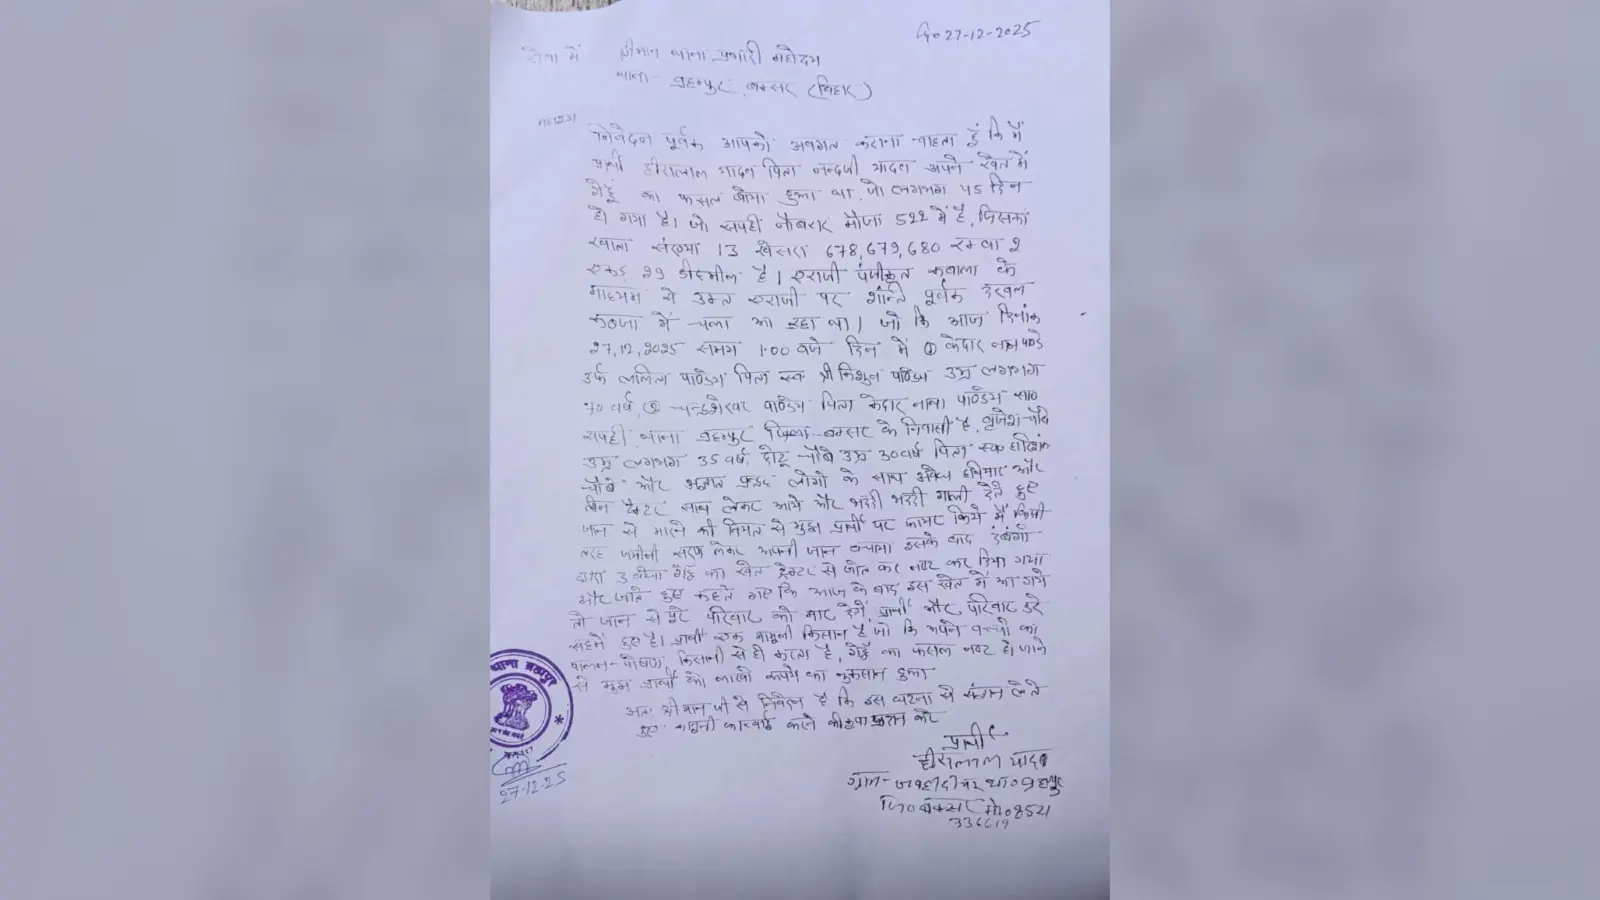 दि० 27-12-2025
सेवा में
श्रीमान थाना प्रभारी महोदय
थाना - ब्रह्मपुर, बक्सर (बिहार)
महाशय
निवेदन पूर्वक आपको अवगत कराना चाहता हूं कि मैं
प्रार्थी हीरालाल यादव पिता नन्दजी यादव अपने खेत में
गेहूं का फसल बोया हुआ था, जो लगभग 45 दिन
हो गया है। जो सपही मौजा 522 में है, जिसका
खाता संख्या 13 खेसरा 678,679,680 रकवा 2
एकड़ 29 डीसमील है। एराजी पंजीकृत कबाला के
माध्यम से उक्त एराजी पर शांति पूर्वक दखल
कब्जा में चला आ रहा था। जो कि आज दिनांक
27,12,2025 समय 1:00 बजे दिन में ① केदार नाथ पाण्डे
उर्फ ललिता पाण्डेय पिता स्व श्री किशुन पाण्डेय उम्र लगभग
वर्ष, ② चन्द्रशेखर पाण्डेय पिता केदार नाथ पाण्डेय सा०
सपही, थाना ब्रह्मपुर जिला-बक्सर के निवासी है, बृजेश चौबे
उम्र लगभग 35 वर्ष, छोटू चौबे उम्र 30 वर्ष पिता स्व०
चौबे और अज्ञात लोगों के साथ अवैध हथियार और
तीन ट्रैक्टर साथ लेकर आये और भद्दी भद्दी गाली देते हुए
जान से मारने की नियत से मुझ प्रार्थी पर फायर किये मैं किसी
तरह जमीनी सतह लेकर अपनी जान बचाया इसके बाद दबंगो
द्वारा 3 बीघा गेहूं का खेत ट्रैक्टर से जोत कर नष्ट कर दिया गया
और जाते हुए कहते गए कि आज के बाद इस खेत में आ गये
तो जान से पूरे परिवार को मार देगें, प्रार्थी और परिवार डरे
सहमें हुए है। प्रार्थी एक मामूली किसान है जो कि अपने बच्चो का
पालन-पोषण, किसानी से ही करता है, गेहूँ का फसल नष्ट हो जाने
से मुझ प्रार्थी को लाखो रूपये का नुकसान हुआ
अतः श्रीमान जी से निवेदन है कि इस घटना से संज्ञान लेते
हुए कानूनी कारवाई करने की कृपा प्रदान करें
प्रार्थी
हीरालाल यादव
ग्राम- था० ब्रह्मपुर
जि० बक्सर मो० 8521
थाना ब्रह्मपुर
27-12-25